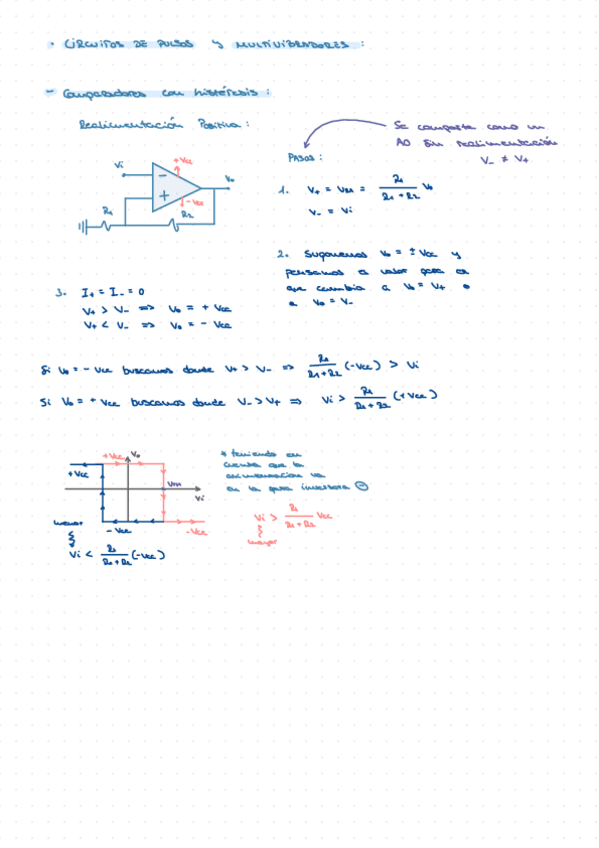 · CIRCUITOS DE PULSOS Y MULTIVIBRADORES :
- Comparadores con histéresis :
Realimentación Positiva :
Se comporta como un
AO sin realimentación
V₋ ≠ V₊
PASOS :
Vi
+Vcc
Vo
-Vcc
R₁
R₂
1. V₊ = VR1 = R₁ / (R₁ + R₂) Vo
V₋ = Vi
2. Suponemos Vo = ± Vcc y
pensamos a valor para el
que cambia a Vo = V₊ o
a Vo = V₋
3. I₊ = I₋ = 0
V₊ > V₋ => Vo = + Vcc
V₊ < V₋ => Vo = - Vcc
Si Vo = - Vcc buscamos donde V₊ > V₋ => R₁ / (R₁ + R₂) (-Vcc) > Vi
Si Vo = + Vcc buscamos donde V₋ > V₊ => Vi > R₁ / (R₁ + R₂) (+Vcc)
+Vcc
Vo
+Vcc
VTH
Vi
- Vcc
-Vcc
* teniendo en
cuenta que la
alimentación va
en la pata inversora ⊖
Vi > R₁ / (R₁ + R₂) Vcc
mayor
Vi < R₁ / (R₁ + R₂) (-Vcc)